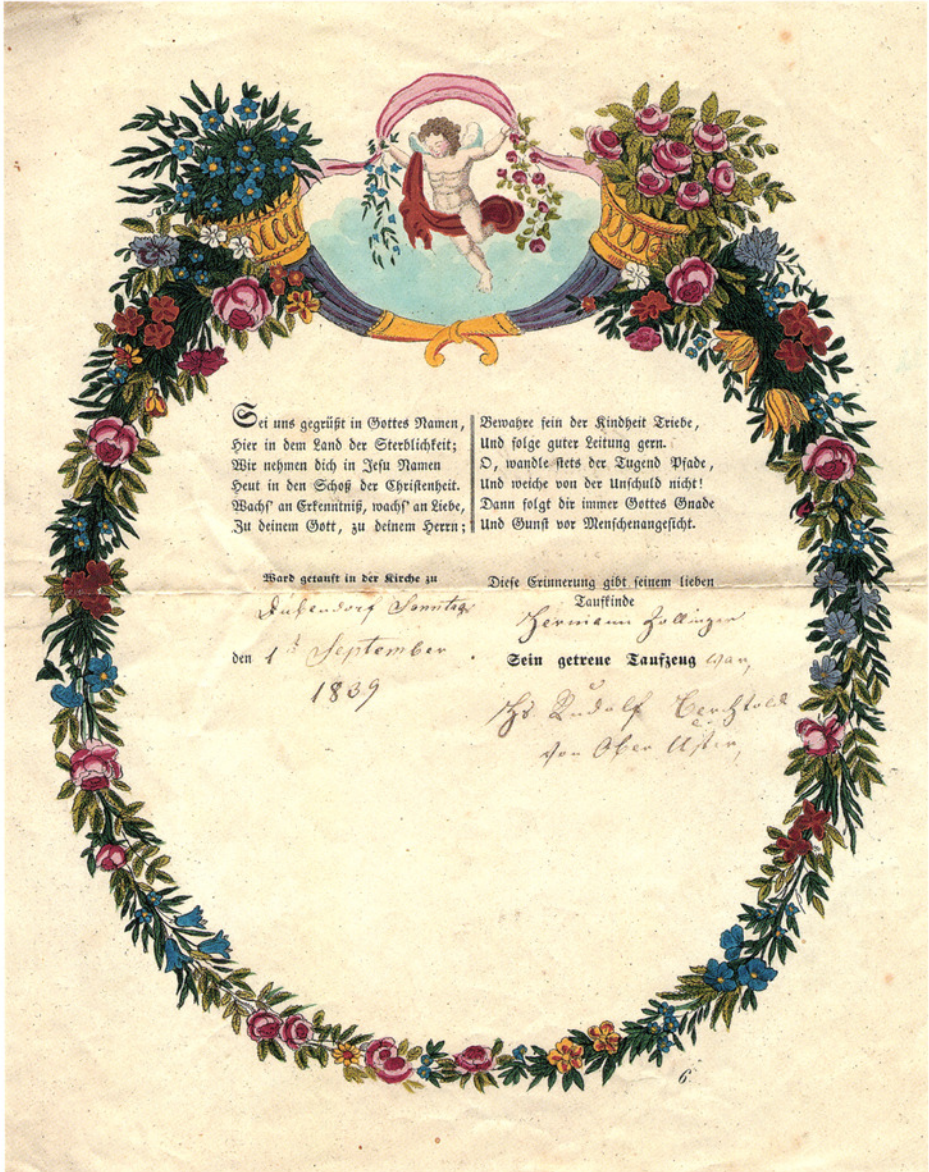 Sei uns gegrüßt in Gottes Namen,
Hier in dem Land der Sterblichkeit;
Wir nehmen dich in Jesu Namen
Heut in den Schoß der Christenheit.
Wachs' an Erkenntniß, wachs' an Liebe,
Zu deinem Gott, zu deinem Herrn;
Bewahre fein der Kindheit Triebe,
Und folge guter Leitung gern.
O, wandle stets der Tugend Pfade,
Und weiche von der Unschuld nicht!
Dann folgt dir immer Gottes Gnade
Und Gunst vor Menschenangesicht.
Ward getauft in der Kirche zu
Dübendorf Sonntag
den 1t September
1839
Diese Erinnerung gibt seinem lieben
Taufkinde
Hermann Zollinger
Sein getreue Taufzeug war,
Hs. Rudolf Berchtold
von Ober Uster,
6